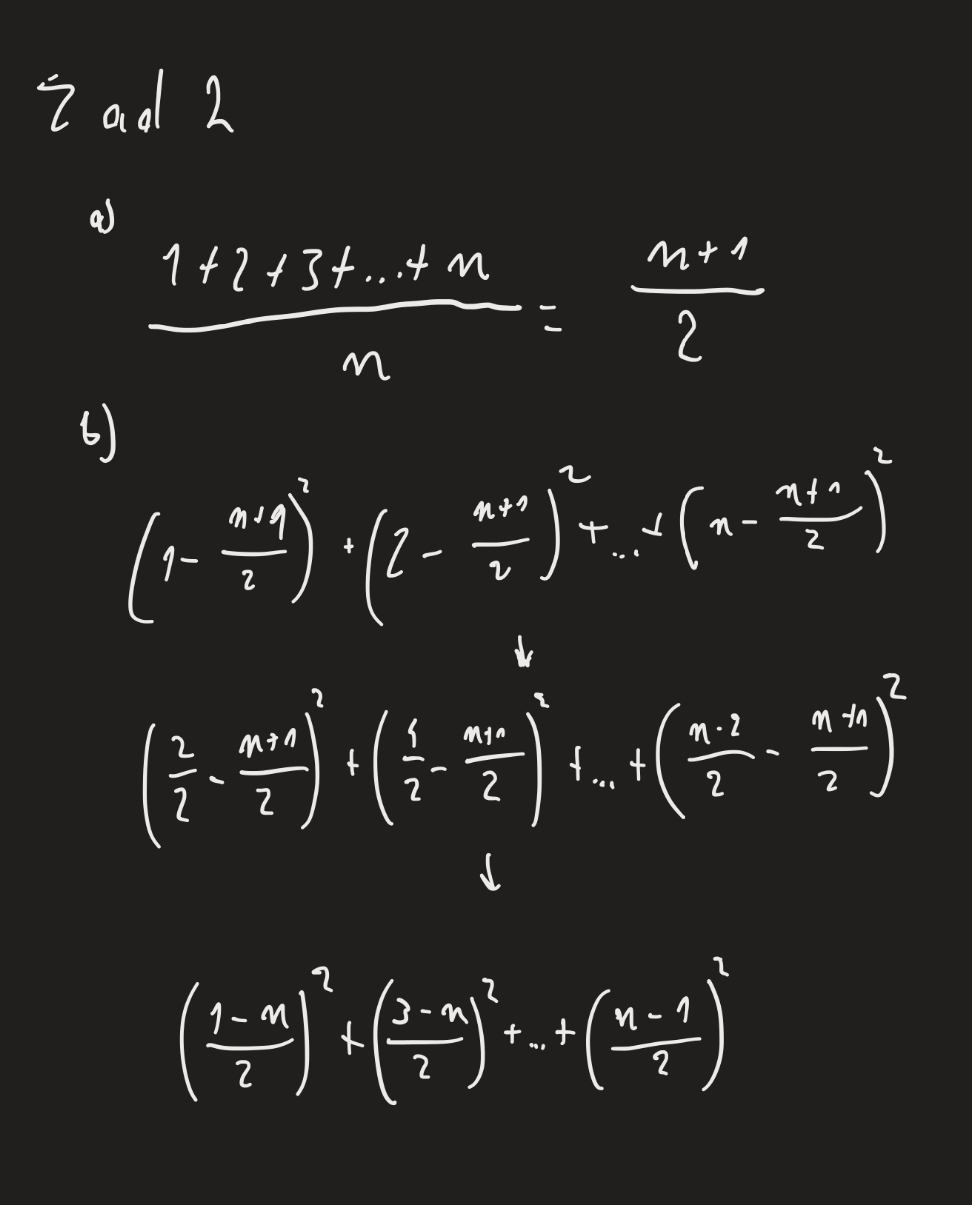 Zad 2
a)
(1+2+3+...+n)/n = (n+1)/2
b)
(1 - (n+1)/2)² + (2 - (n+1)/2)² + ... + (n - (n+1)/2)²
↓
(2/2 - (n+1)/2)² + (4/2 - (n+1)/2)² + ... + ((n·2)/2 - (n+1)/2)²
↓
((1-n)/2)² + ((3-n)/2)² + ... + ((n-1)/2)²